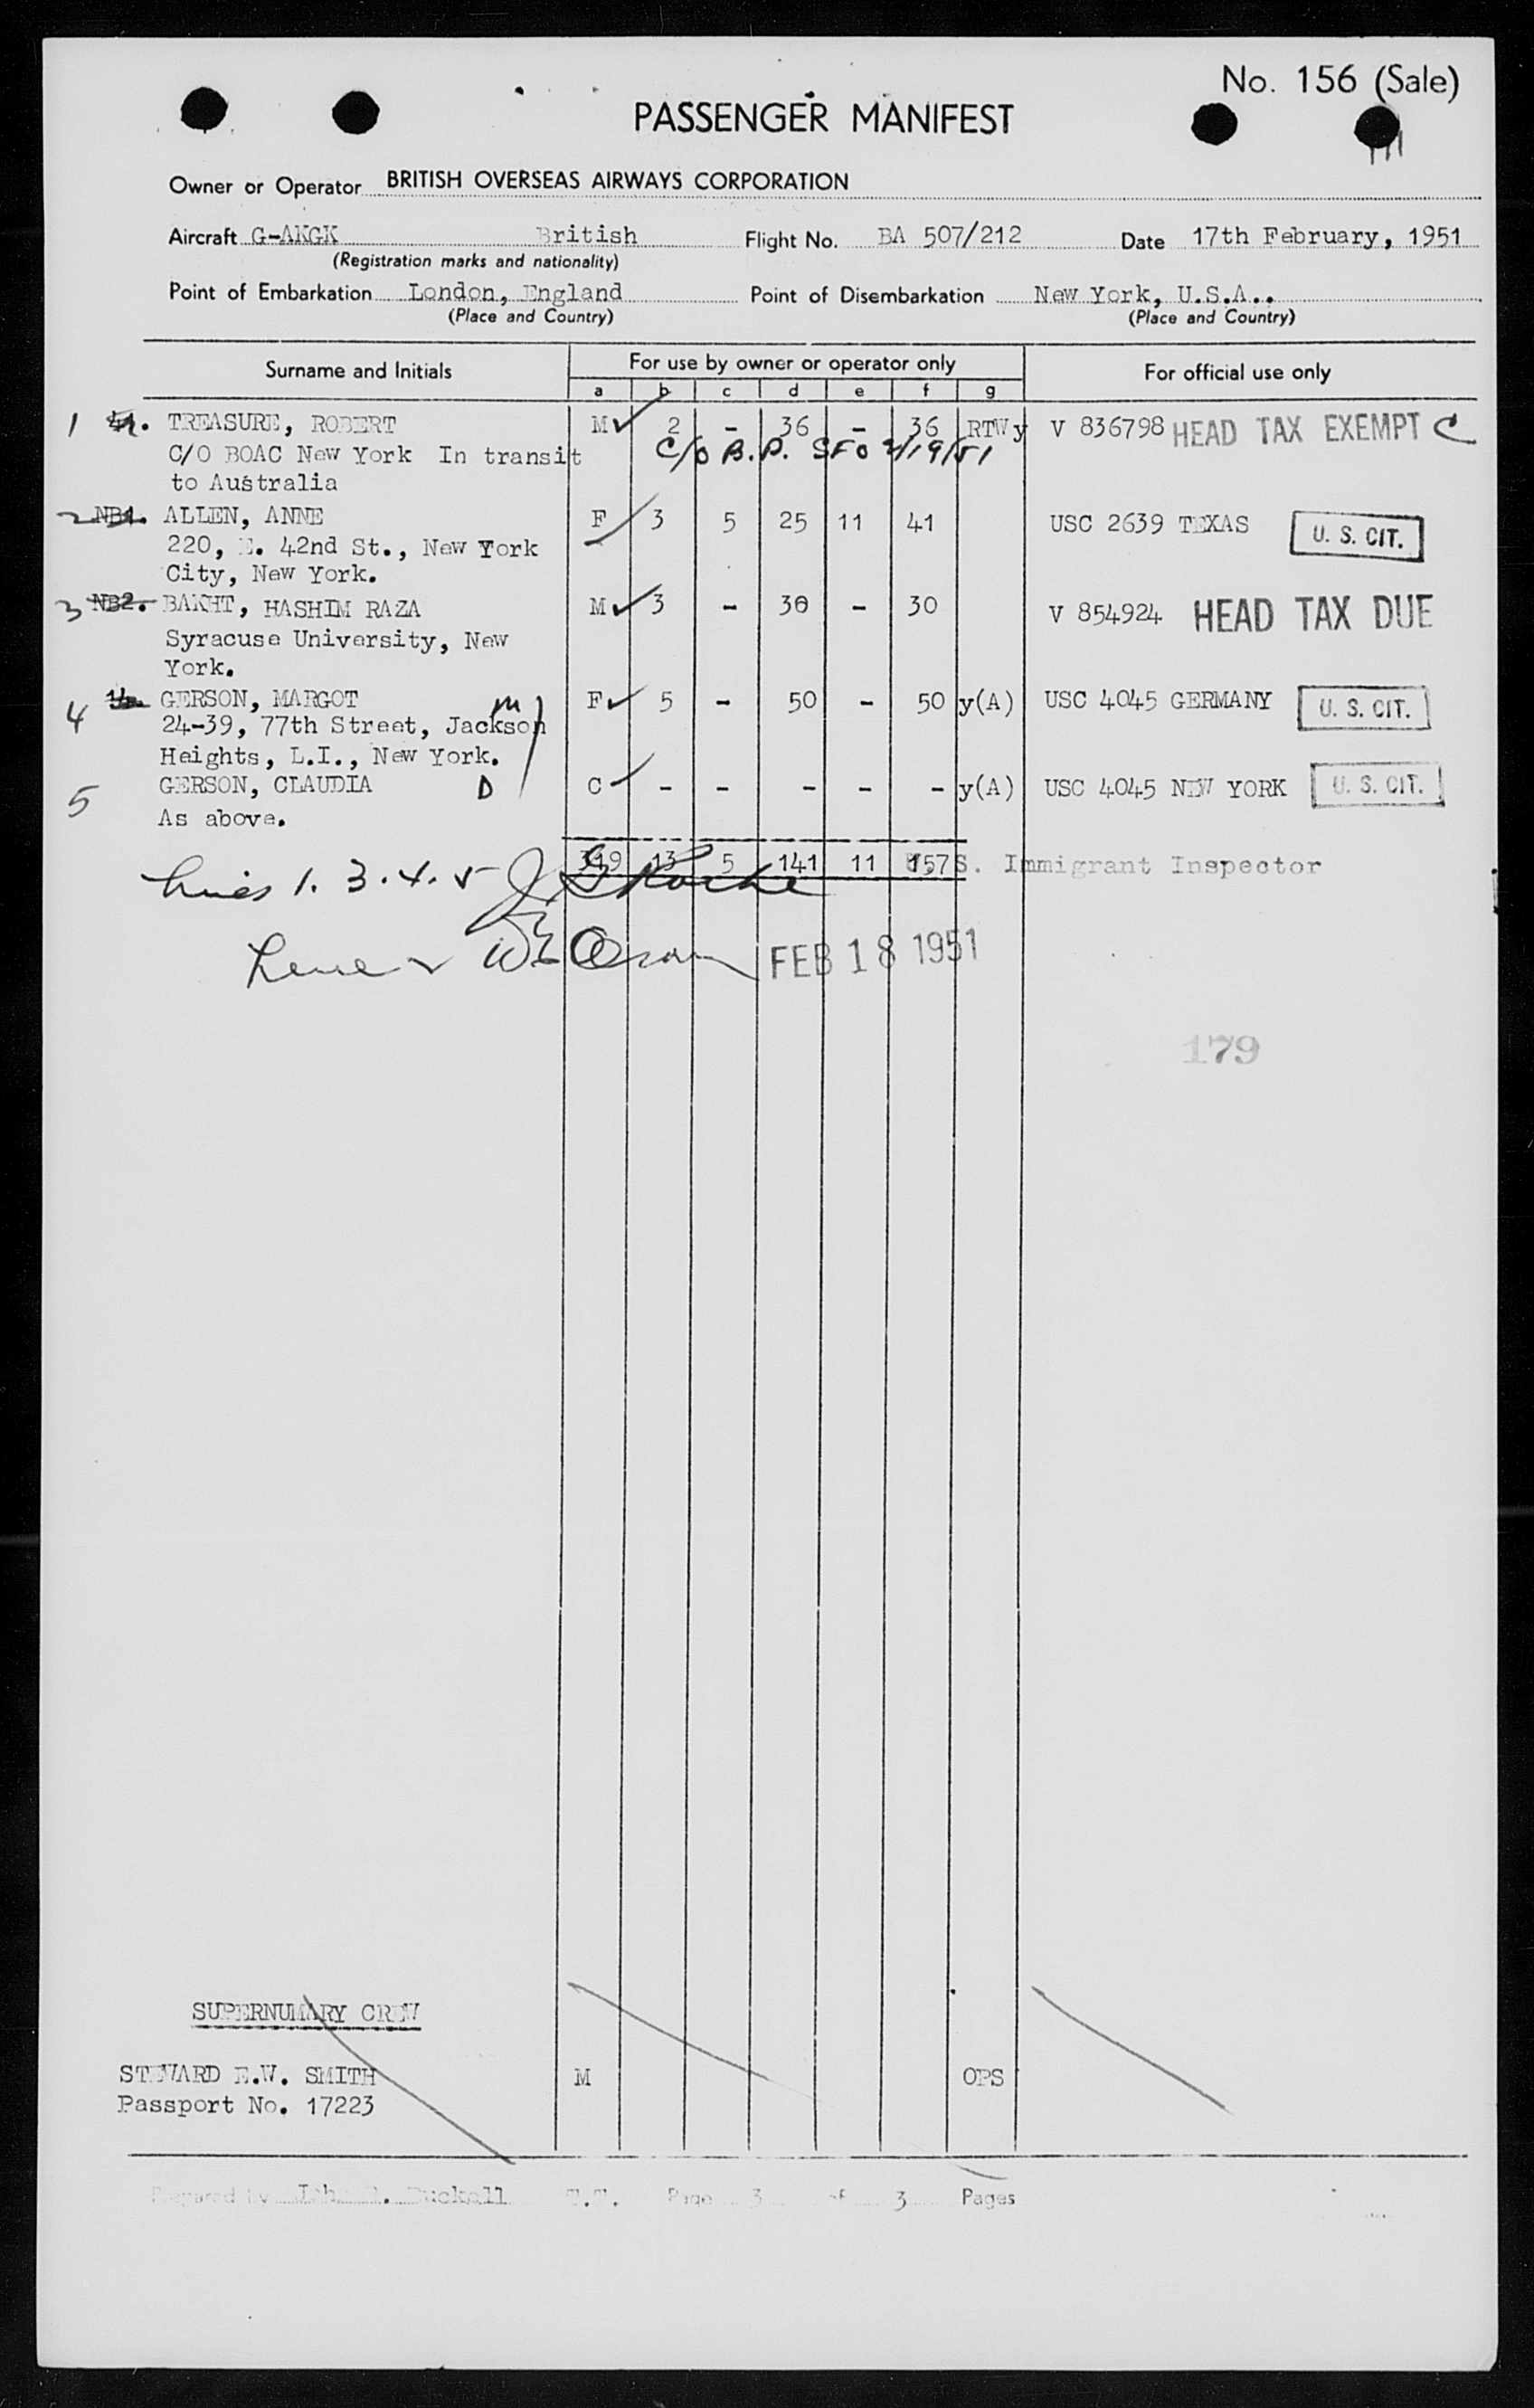 No. 156 (Sale)
PASSENGER MANIFEST
Owner or Operator BRITISH OVERSEAS AIRWAYS CORPORATION
Aircraft G-AKGK British Flight No. BA 507/212 Date 17th February, 1951
(Registration marks and nationality)
Point of Embarkation London, England Point of Disembarkation New York, U.S.A..
(Place and Country) (Place and Country)
Surname and Initials For use by owner or operator only For official use only
a b c d e f g
1 TREASURE, ROBERT M 2 - 36 - 36 RTWy V 836798 HEAD TAX EXEMPT C
C/O BOAC New York In transit C/O B.P. SFO 2/19/51
to Australia
2 NB1. ALLEN, ANNE F 3 5 25 11 41 USC 2639 TEXAS U. S. CIT.
220, E. 42nd St., New York
City, New York.
3 NB2. BAKHT, HASHIM RAZA M 3 - 30 - 30 V 854924 HEAD TAX DUE
Syracuse University, New
York.
4 GERSON, MARGOT M F 5 - 50 - 50 y(A) USC 4045 GERMANY U. S. CIT.
24-39, 77th Street, Jackson
Heights, L.I., New York.
5 GERSON, CLAUDIA D C - - - - - y(A) USC 4045 NEW YORK U. S. CIT.
As above.
13 5 141 11 157 S. Immigrant Inspector
Lines 1. 3. 4. 5
Line 2 FEB 18 1951
179
SUPERNUMARY CREW
STEWARD E.W. SMITH M OPS
Passport No. 17223
Prepared by Page 3 of 3 Pages